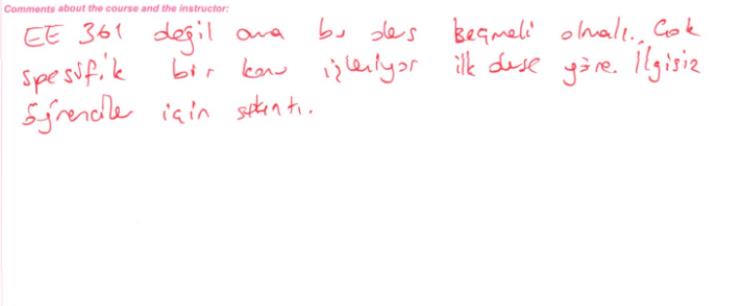 Comments about the course and the instructor:
EE 361 değil ama bu ders seçmeli olmalı. Çok
spesifik bir konu işleniyor ilk derse göre. İlgisiz
öğrenciler için sıkıntı.